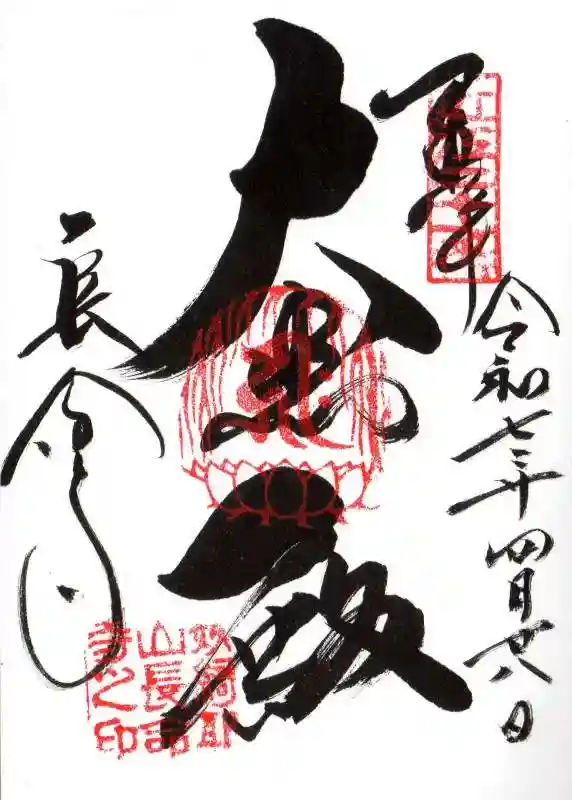 奉拝
令和七年四月廿八日
大悲殿
長命寺
山長命
寺之印